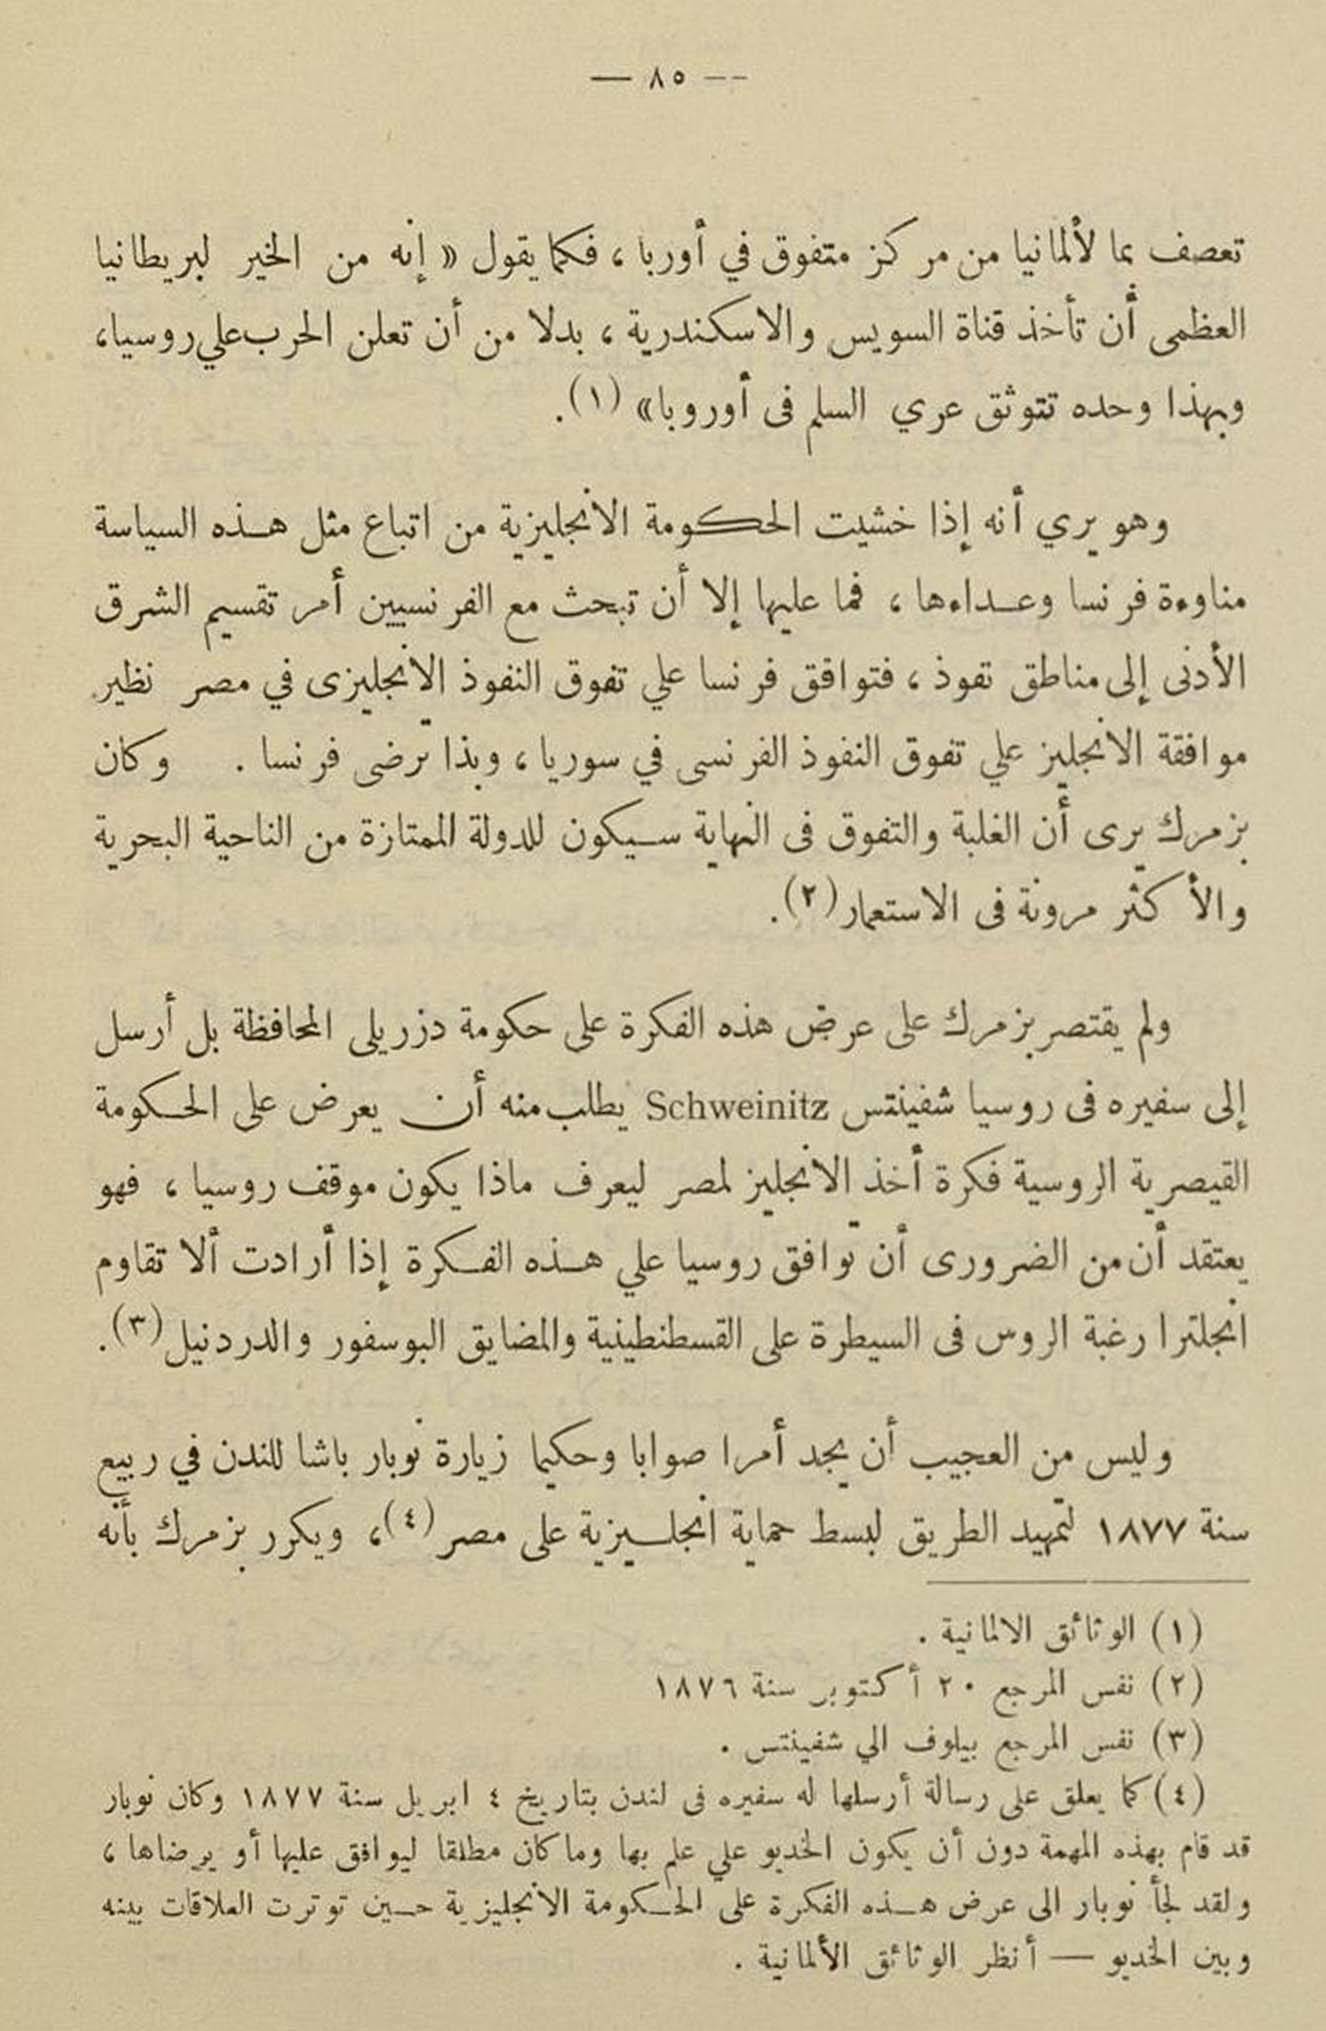 — ٨٥ —
تعصف بما لألمانيا من مركز متفوق في أوربا ، فكما يقول « إنه من الخير لبريطانيا
العظمى أن تأخذ قناة السويس والاسكندرية ، بدلا من أن تعلن الحرب علي روسيا،
وبهذا وحده تتوثق عري السلم فى أوروبا» (١).
وهو يري أنه إذا خشيت الحكومة الانجليزية من اتباع مثل هذه السياسة
مناوءة فرنسا وعداءها ، فما عليها إلا أن تبحث مع الفرنسيين أمر تقسيم الشرق
الأدنى إلى مناطق نفوذ ، فتوافق فرنسا علي تفوق النفوذ الانجليزى في مصر نظير
موافقة الانجليز علي تفوق النفوذ الفرنسى في سوريا ، وبذا ترضى فرنسا . وكان
بزمرك يرى أن الغلبة والتفوق فى النهاية سيكون للدولة الممتازة من الناحية البحرية
والأكثر مرونة فى الاستعمار (٢).
ولم يقتصر بزمرك على عرض هذه الفكرة على حكومة دزريلى المحافظة بل أرسل
إلى سفيره فى روسيا شفينتس Schweinitz يطلب منه أن يعرض على الحكومة
القيصرية الروسية فكرة أخذ الانجليز لمصر ليعرف ماذا يكون موقف روسيا ، فهو
يعتقد أن من الضرورى أن توافق روسيا علي هذه الفكرة إذا أرادت ألا تقاوم
انجلترا رغبة الروس فى السيطرة على القسطنطينية والمضايق البوسفور والدردنيل (٣).
وليس من العجيب أن يجد أمرا صوابا وحكيما زيارة نوبار باشا للندن في ربيع
سنة ١٨٧٧ لتمهيد الطريق لبسط حماية انجليزية على مصر (٤)، ويكرر بزمرك بأنه
(١) الوثائق الالمانية .
(٢) نفس المرجع ٢٠ أكتوبر سنة ١٨٧٦
(٣) نفس المرجع بيلوف الي شفينتس .
(٤) كما يعلق على رسالة أرسلها له سفيره فى لندن بتاريخ ٤ ابريل سنة ١٨٧٧ وكان نوبار
قد قام بهذه المهمة دون أن يكون الخديو علي علم بها وما كان مطلقا ليوافق عليها أو يرضاها ،
ولقد لجأ نوبار الى عرض هذه الفكرة على الحكومة الانجليزية حين توترت العلاقات بينه
وبين الخديو — أنظر الوثائق الألمانية .